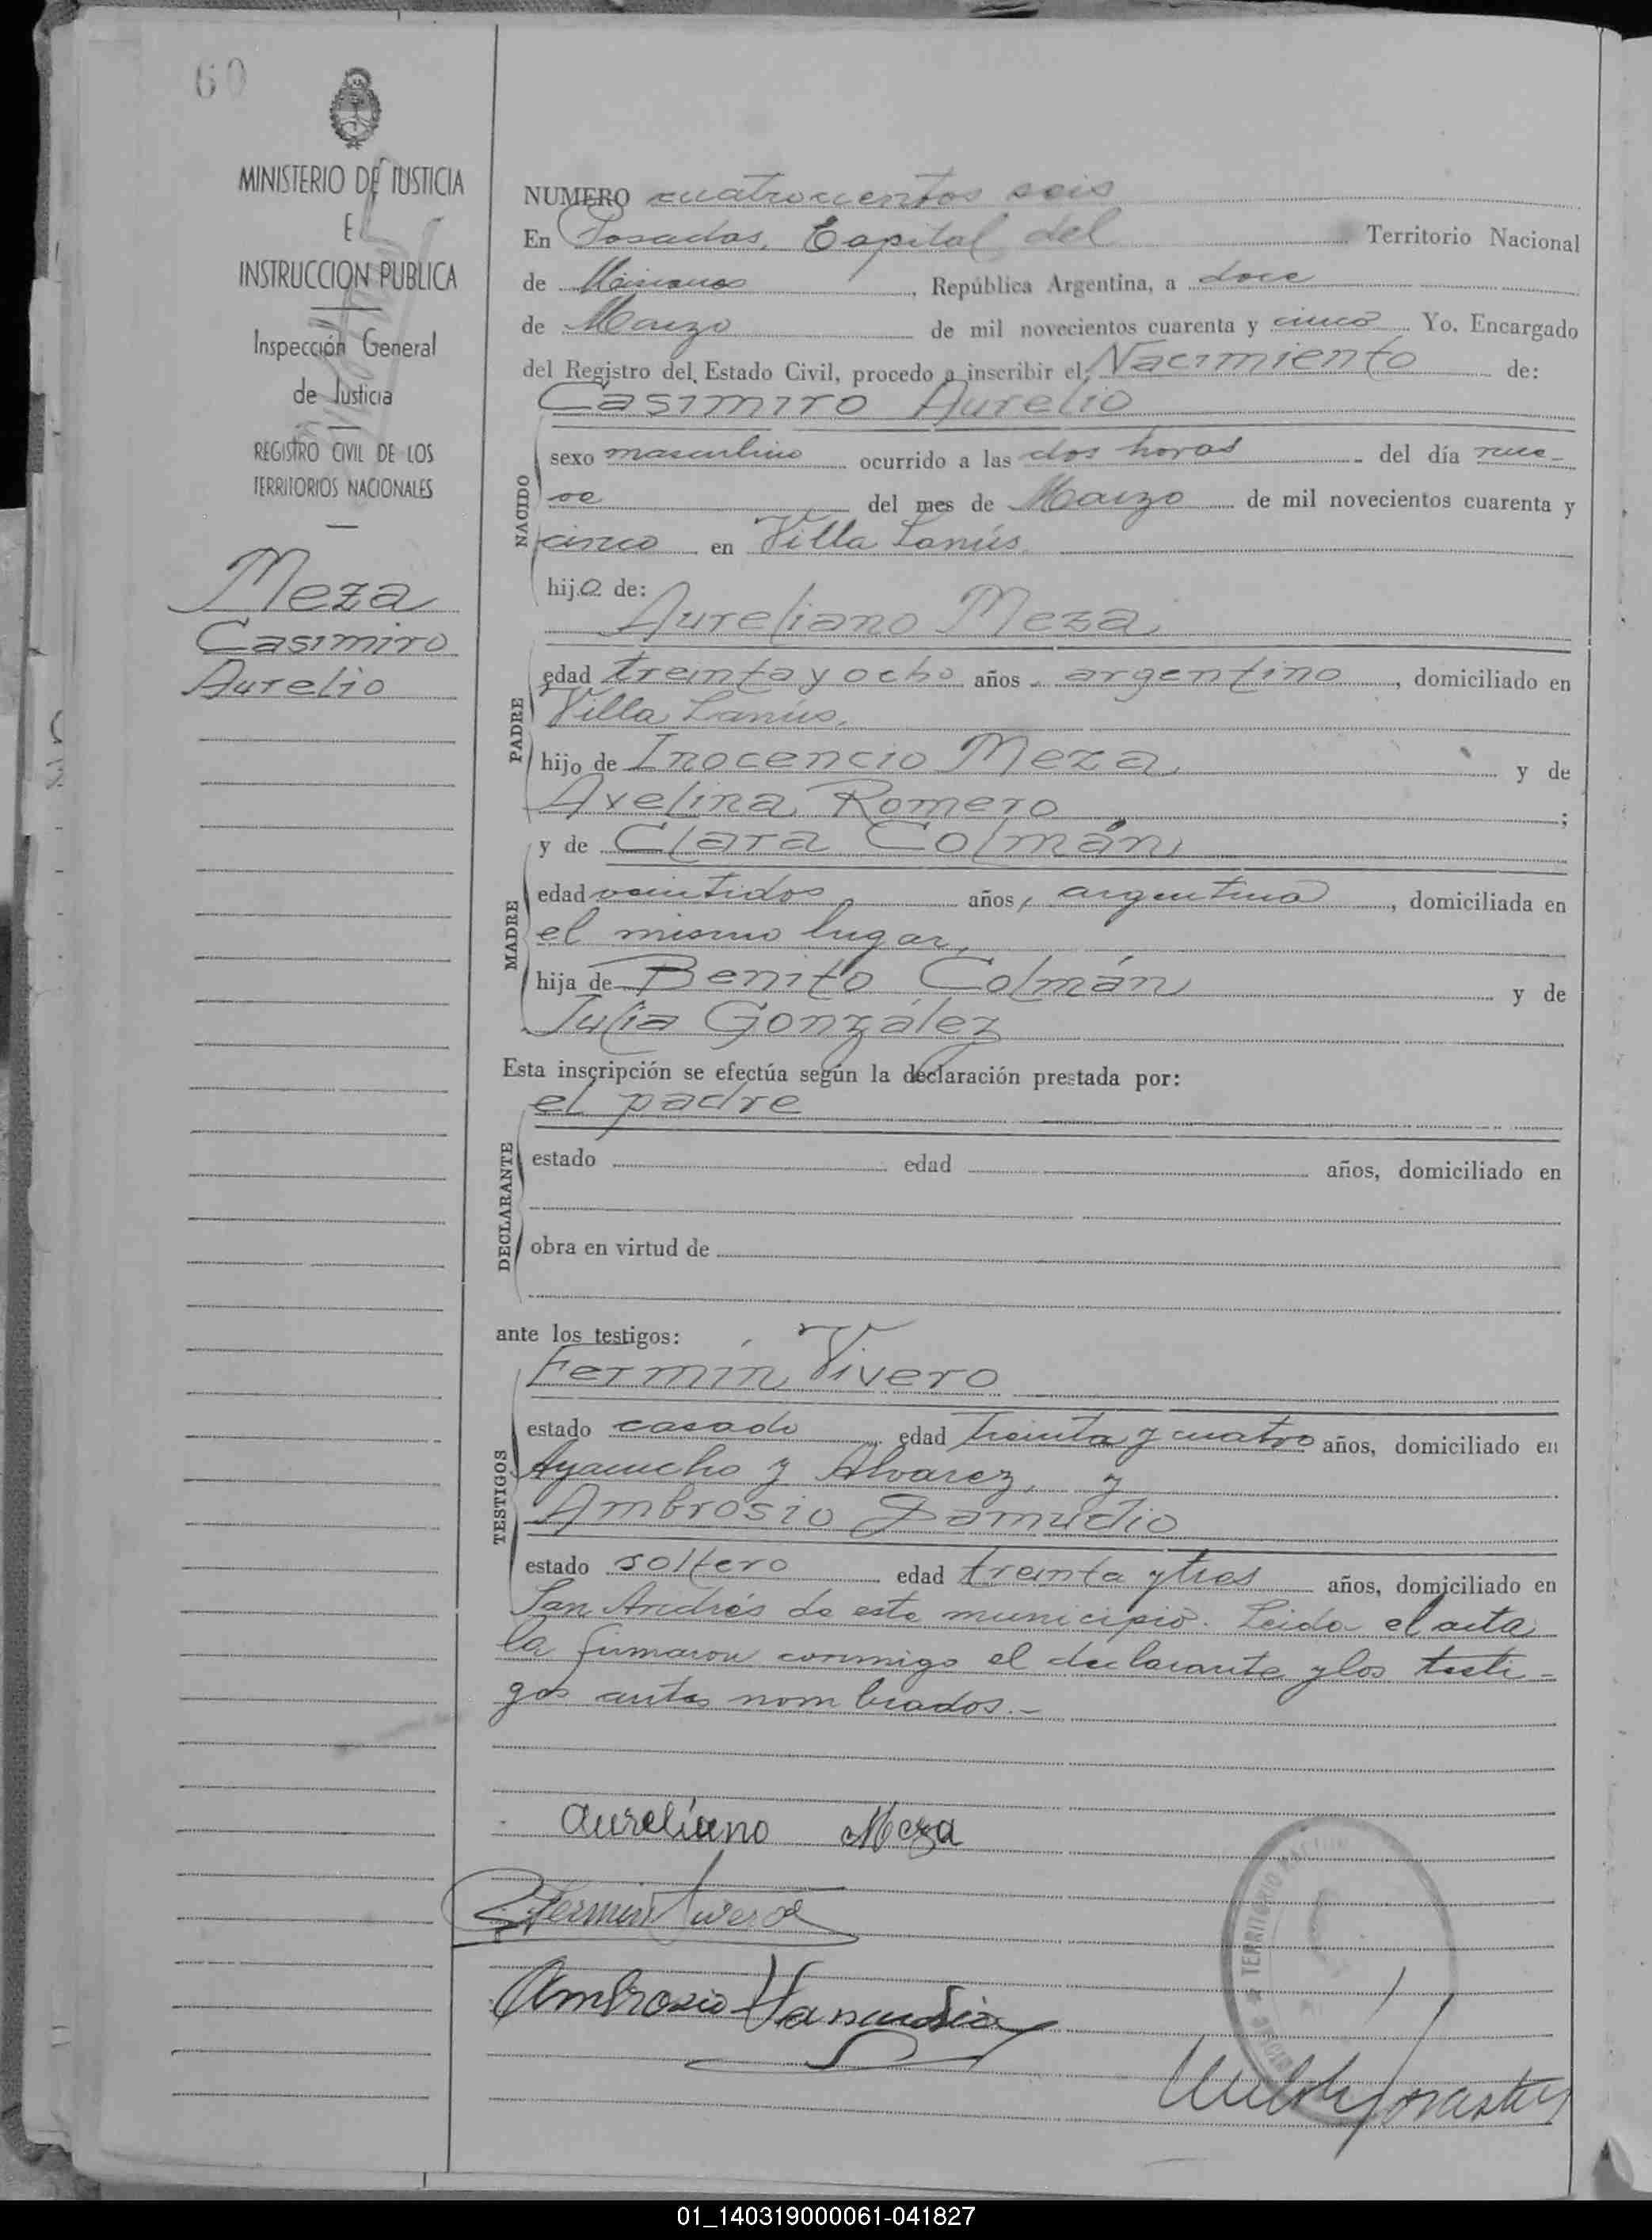 60
MINISTERIO DE JUSTICIA
E
INSTRUCCION PUBLICA
Inspección General
de Justicia
REGISTRO CIVIL DE LOS
TERRITORIOS NACIONALES
Meza
Casimiro
Aurelio
NUMERO cuatrocientos seis
En Posadas, Capital del Territorio Nacional
de Misiones, República Argentina, a doce
de Marzo de mil novecientos cuarenta y cinco Yo. Encargado
del Registro del Estado Civil, procedo a inscribir el Nacimiento de:
Casimiro Aurelio
NACIDO
sexo masculino ocurrido a las dos horas del día nue-
ve del mes de Marzo de mil novecientos cuarenta y
cinco en Villa Lanús
hijo de:
Aureliano Meza,
PADRE
edad treinta y ocho años argentino, domiciliado en
Villa Lanús,
hijo de Inocencio Meza, y de
Avelina Romero;
y de Clara Colmán,
MADRE
edad veintidos años, argentina, domiciliada en
el mismo lugar,
hija de Benito Colmán y de
Julia González
Esta inscripción se efectúa según la declaración prestada por:
el padre
DECLARANTE
estado edad años, domiciliado en
obra en virtud de
ante los testigos:
Fermín Vivero
TESTIGOS
estado casado edad treinta y cuatro años, domiciliado en
Ayacucho y Alvarez, y
Ambrosio Zamudio
estado soltero edad treinta y tres años, domiciliado en
San Andrés de este municipio. Leida el acta
la firmaron conmigo el declarante y los testi-
gos antes nombrados.-
Aureliano Meza
Fermin Vivero
Ambrosio Zamudio
TERRITORIO
01_140319000061-041827